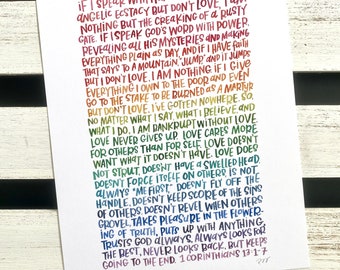 IF I SPEAK WITH HUMAN
ANGELIC ECSTACY BUT DON'T LOVE, I AM
NOTHING BUT THE CREAKING OF A RUSTY
GATE. IF I SPEAK GOD'S WORD WITH POWER,
REVEALING ALL HIS MYSTERIES AND MAKING
EVERYTHING PLAIN AS DAY, AND IF I HAVE FAITH
THAT SAYS TO A MOUNTAIN "JUMP" AND IF JUMPS
BUT I DON'T LOVE, I AM NOTHING. IF I GIVE
EVERYTHING I OWN TO THE POOR AND EVEN
GO TO THE STAKE TO BE BURNED AS A MARTYR
BUT DON'T LOVE, I'VE GOTTEN NOWHERE. SO,
NO MATTER WHAT I SAY, WHAT I BELIEVE AND
WHAT I DO, I AM BANKRUPT WITHOUT LOVE.
LOVE NEVER GIVES UP. LOVE CARES MORE
FOR OTHERS THAN FOR SELF. LOVE DOESN'T
WANT WHAT IT DOESN'T HAVE. LOVE DOES
NOT STRUT, DOESN'T HAVE A SWELLED HEAD,
DOESN'T FORCE ITSELF ON OTHERS, IS NOT
ALWAYS "ME FIRST," DOESN'T FLY OFF THE
HANDLE, DOESN'T KEEP SCORE OF THE SINS
OF OTHERS, DOESN'T REVEL WHEN OTHERS
GROVEL, TAKES PLEASURE IN THE FLOWER-
ING OF TRUTH, PUTS UP WITH ANYTHING,
TRUSTS GOD ALWAYS, ALWAYS LOOKS FOR
THE BEST, NEVER LOOKS BACK, BUT KEEPS
GOING TO THE END. 1 CORINTHIANS 13:1-7